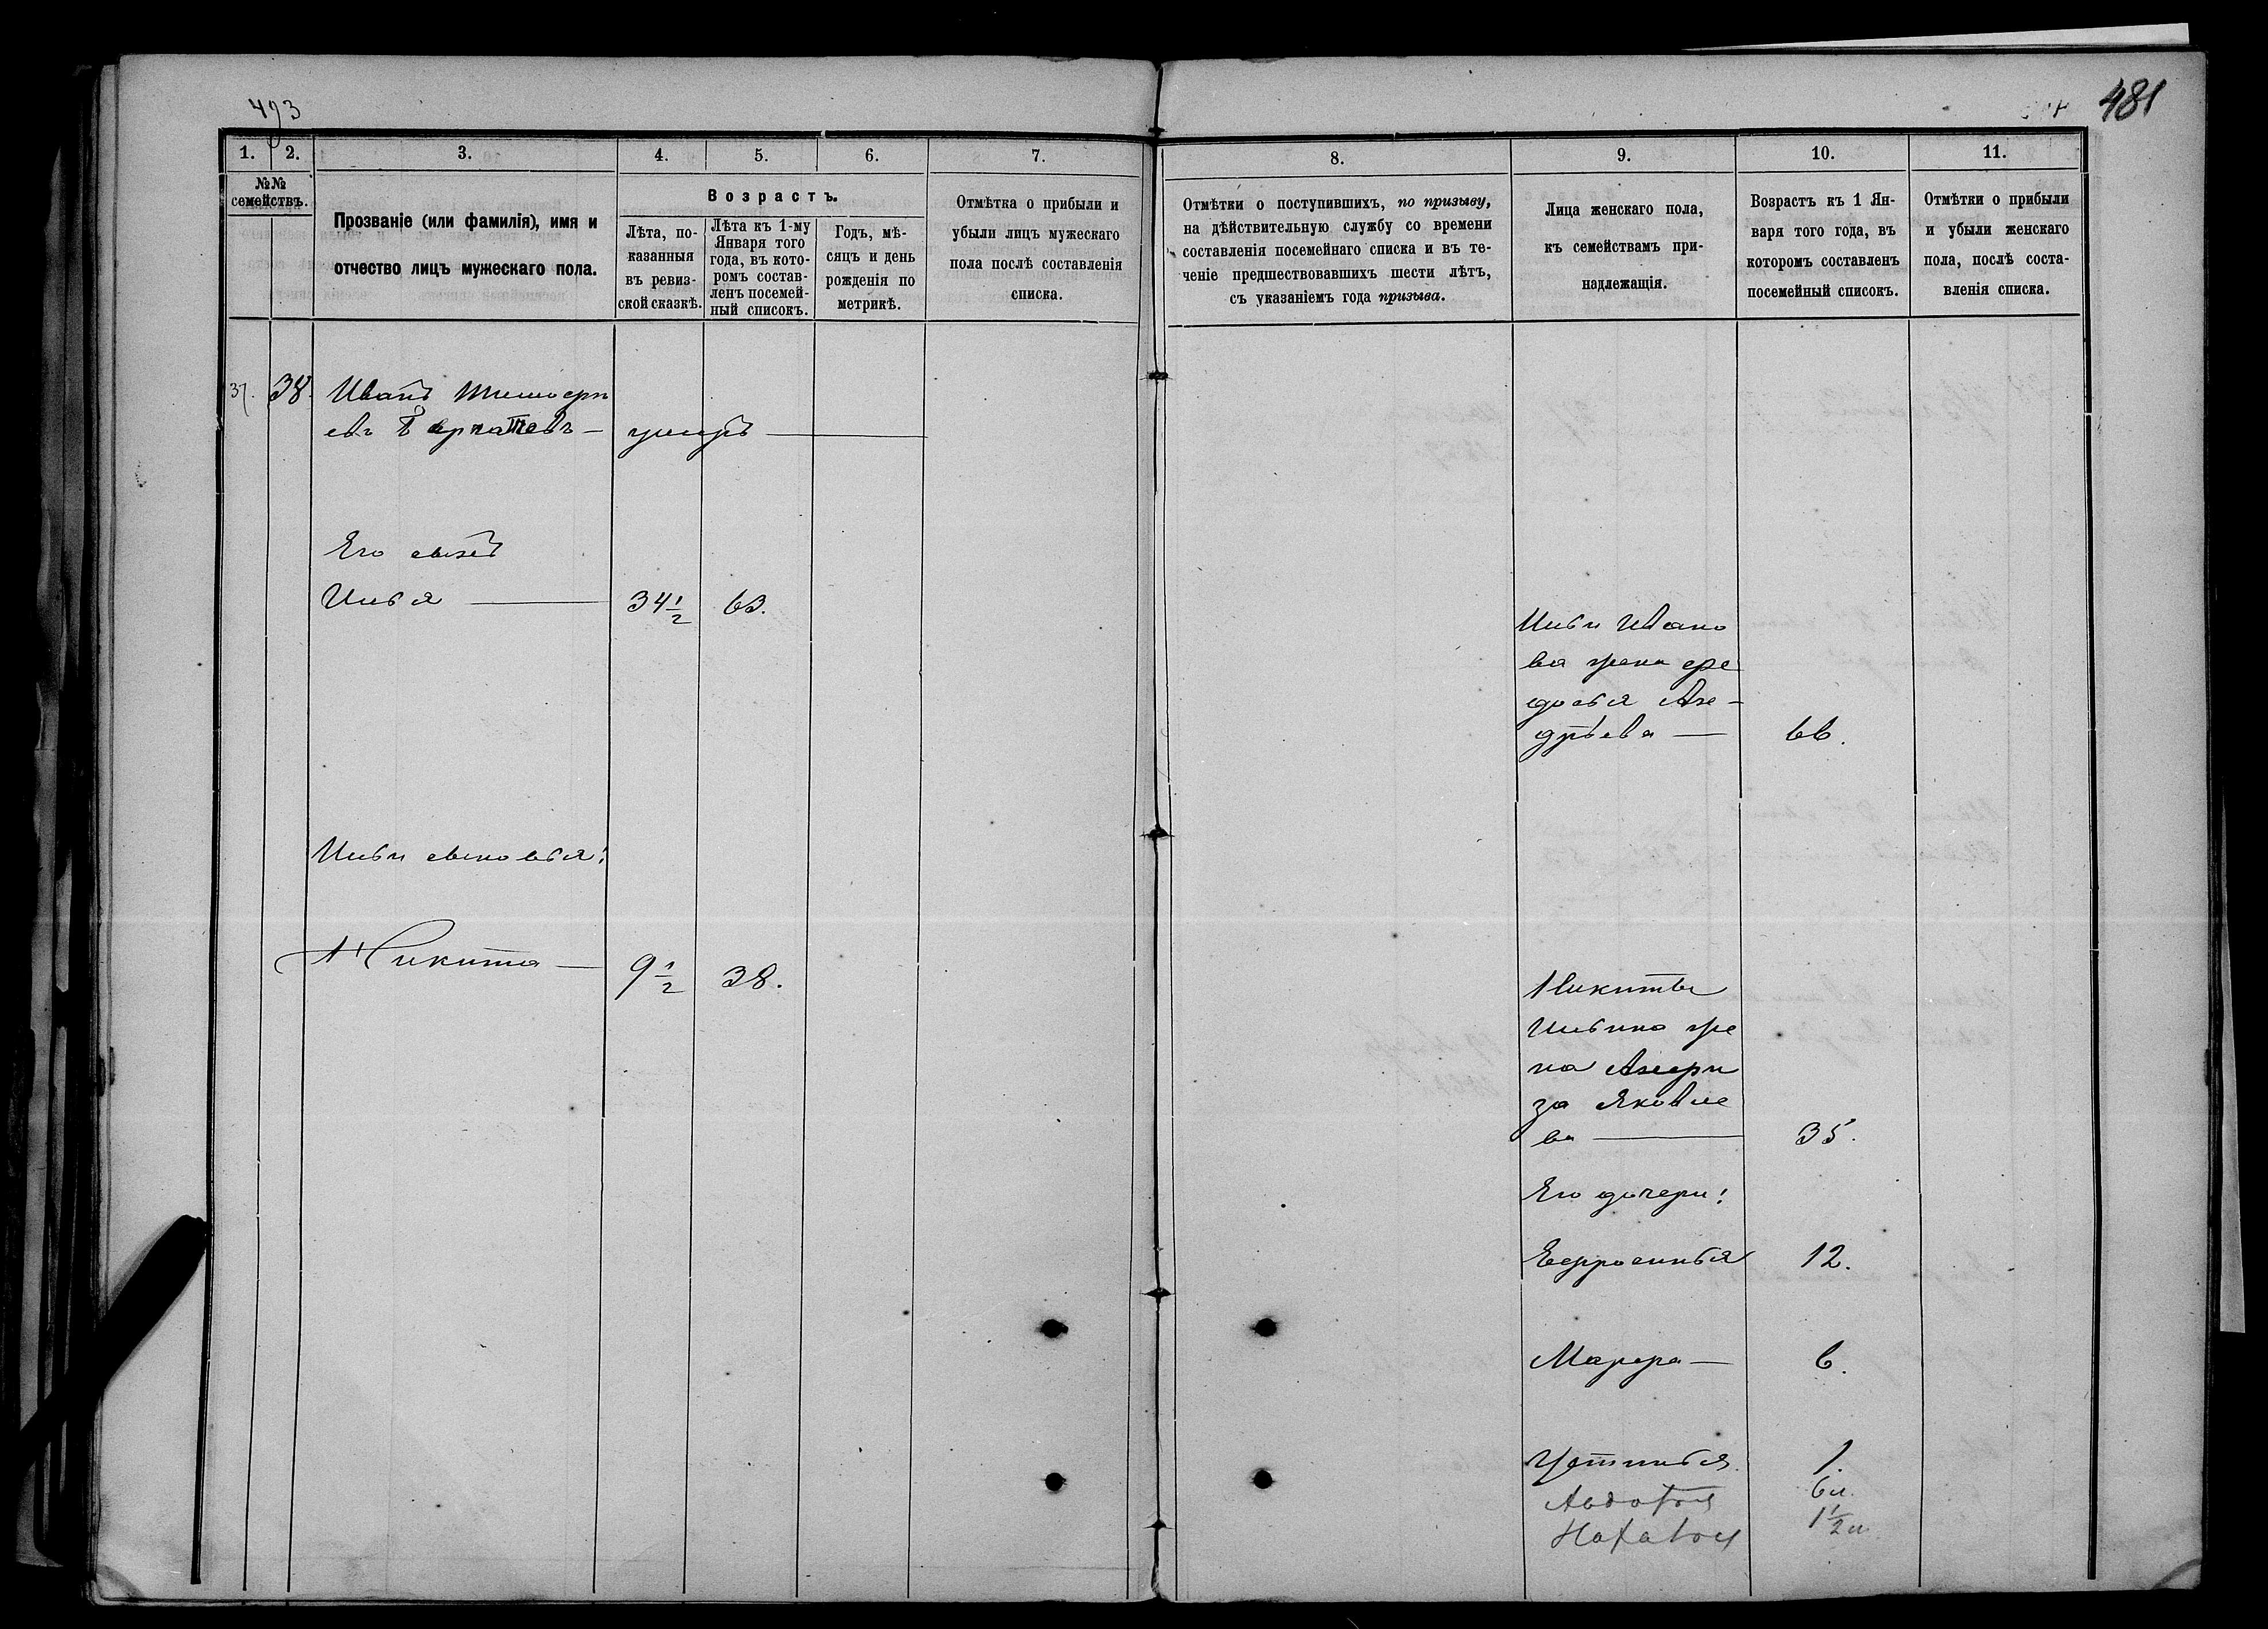 493
481
1.
2.
3.
4.
5.
6.
7.
8.
9.
10.
11.
№№
семействъ.
Прозваніе (или фамилія), имя и
отчество лицъ мужескаго пола.
Возрастъ.
Лѣта, по-
казанныя
въ ревиз-
ской сказкѣ.
Лѣта къ 1-му
Января того
года, въ кото-
ромъ состав-
ленъ посемей-
ный списокъ.
Годъ, мѣ-
сяцъ и день
рожденія по
метрикѣ.
Отмѣтка о прибыли и
убыли лицъ мужескаго
пола послѣ составленія
списка.
Отмѣтки о поступившихъ, по призыву,
на дѣйствительную службу со времени
составленія посемейнаго списка и въ те-
ченіе предшествовавшихъ шести лѣтъ,
съ указаніемъ года призыва.
Лица женскаго пола,
къ семействамъ при-
надлежащія.
Возрастъ къ 1 Ян-
варя того года, въ
которомъ составленъ
посемейный списокъ.
Отмѣтки о прибыли
и убыли женскаго
пола, послѣ соста-
вленія списка.
37. 38. Иванъ Тимофѣ
евъ — умеръ —
Его сынъ
Илья — 34 1/2 63.
Ильи Ивано
ва жена Ѳе
досья Ан-
дрѣева — 66.
Ильи сыновья:
Никита — 9 1/2 38.
Никиты
Ильина же
на
Яковле
ва — 35.
Его дочери:
Евфросинья 12.
Марфа — 6.
Устинья 1.
Авдотья 6 л.
Наталья 1 1/2 л.